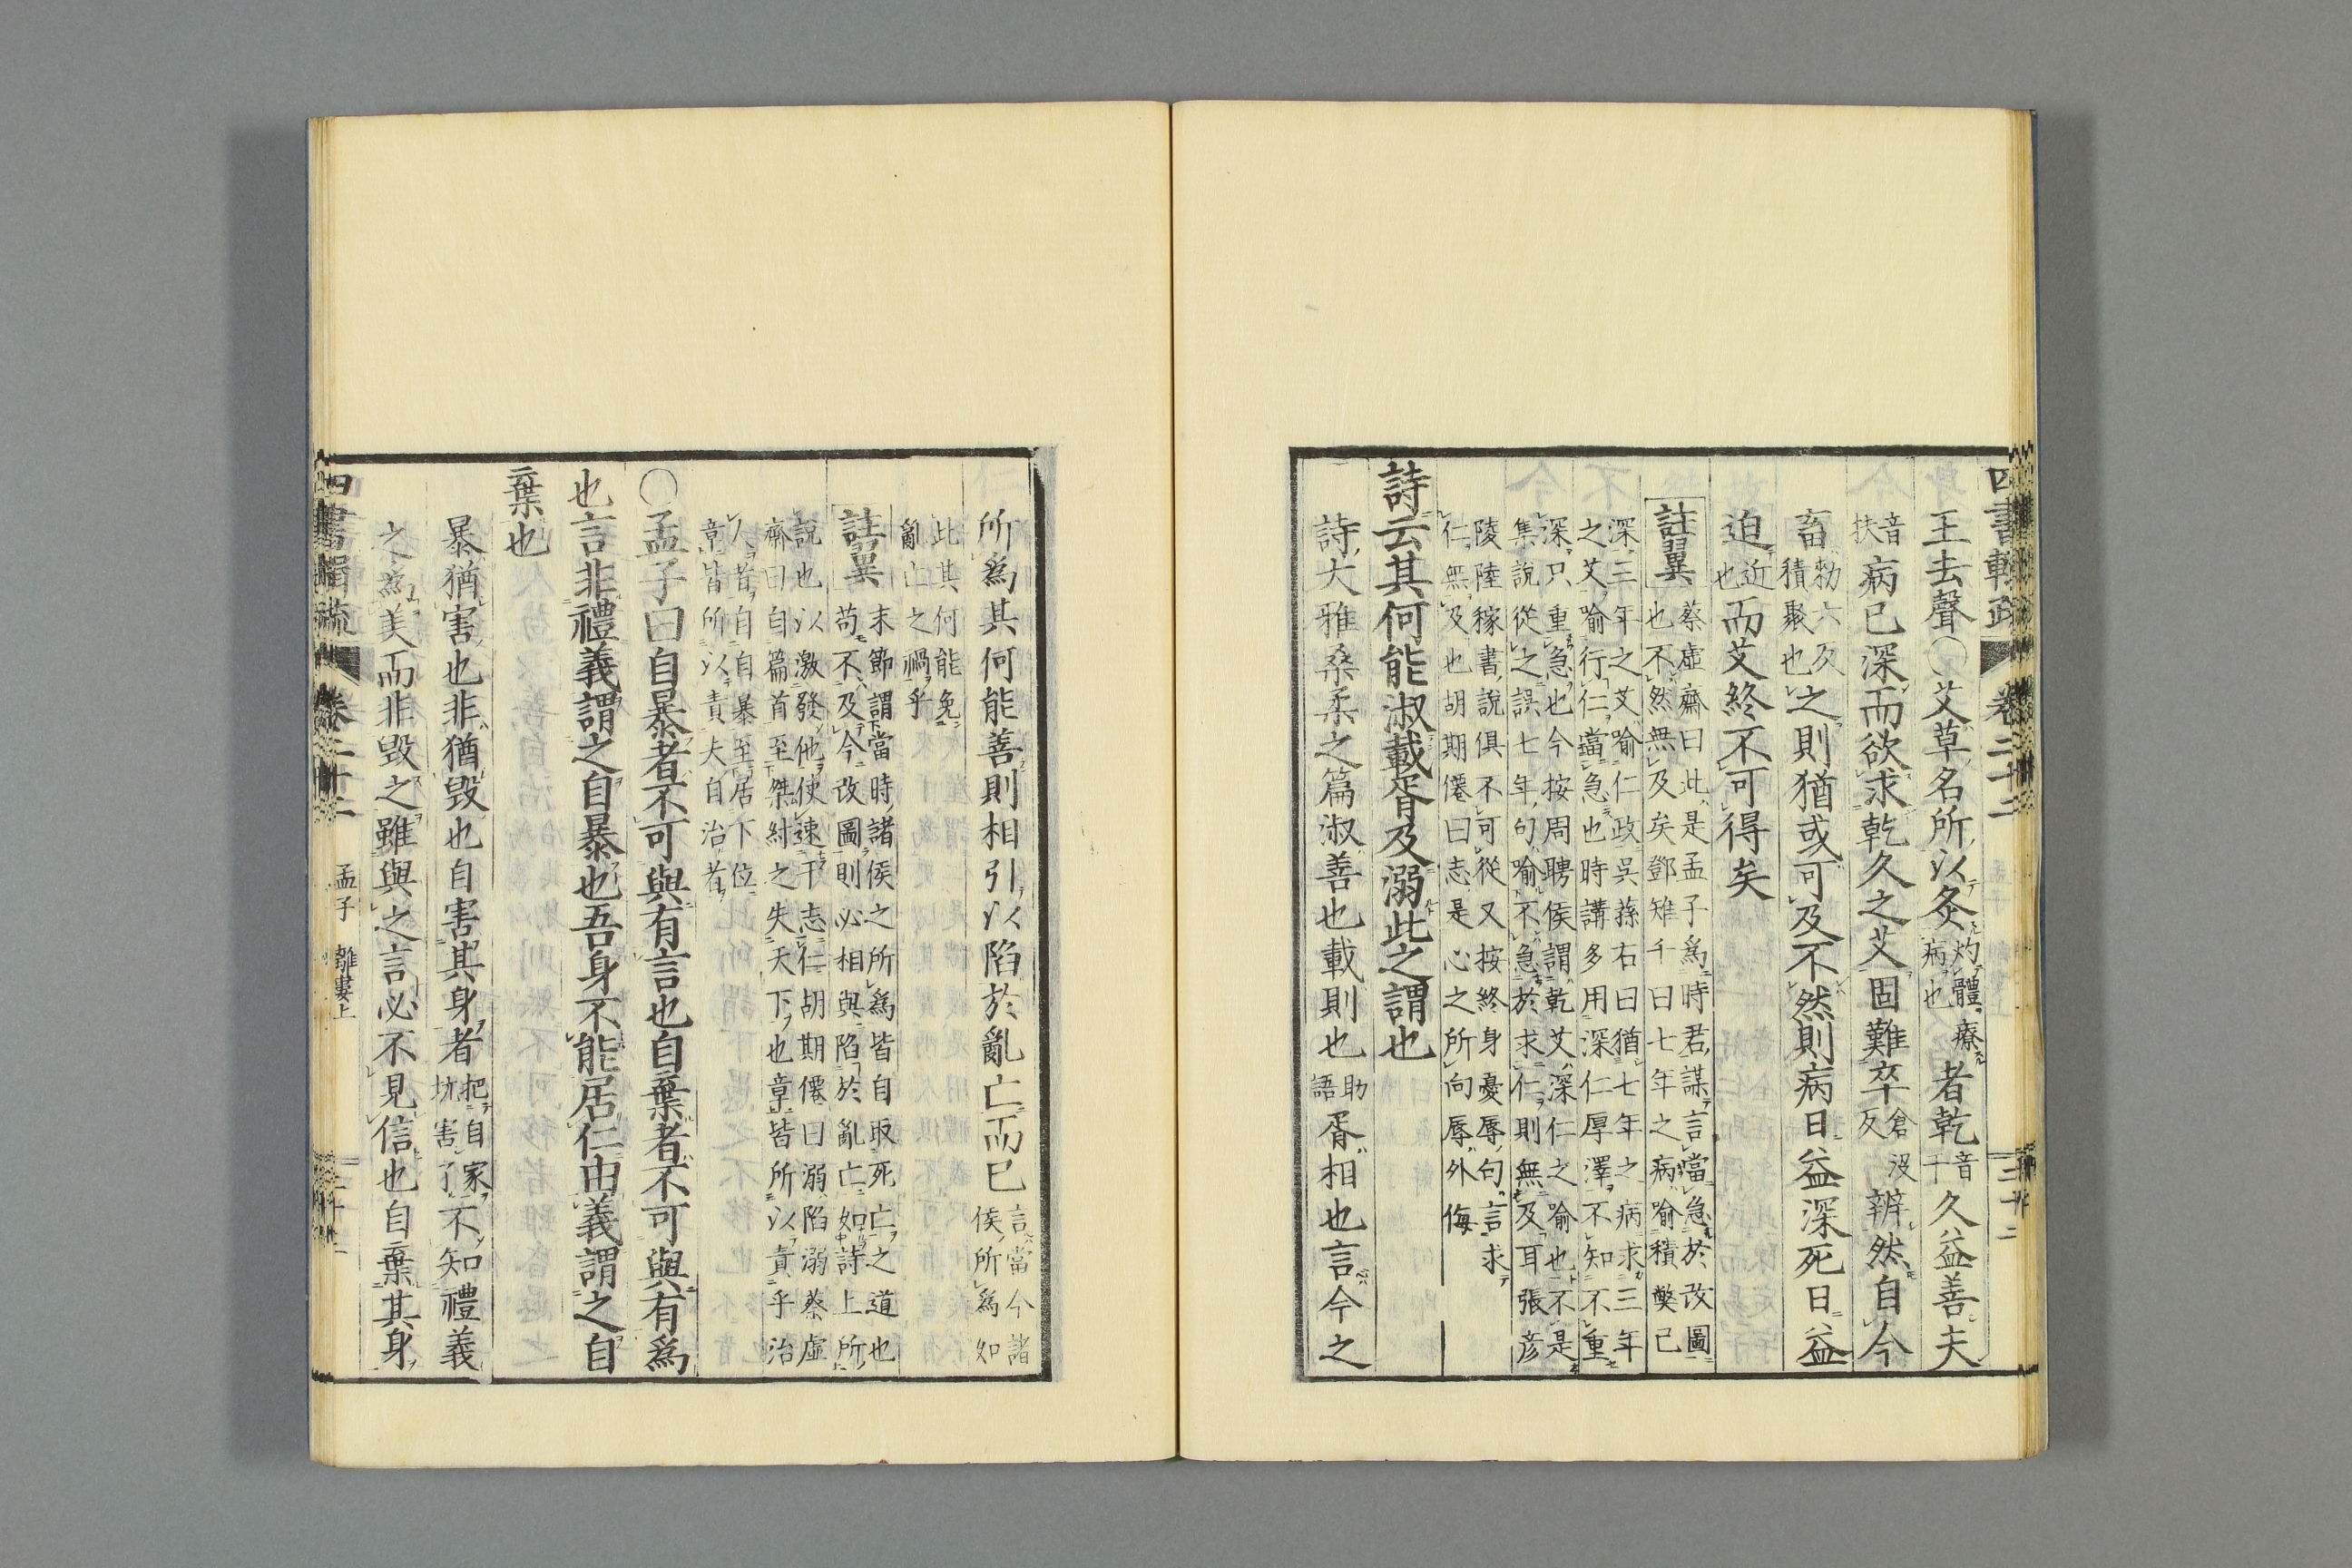 四書輯疏 卷二十二 三十二
王去聲○艾草名所以灸灼體療病也者乾音干久益善夫
音扶病已深而欲求乾久之艾固難卒倉沒反辨然自今
畜勑六反積聚也之則猶或可及不然則病日益深死日益
迫近也而艾終不可得矣
註翼蔡虛齋曰此是孟子爲時君謀言當急於改圖也不然無及矣鄧雉千曰七年之病喻積獘已
深三年之艾喻仁政吳蓀右曰猶七年之病求三年之艾喻行仁當急也時講多用深仁厚澤不知不重
深只重急也今按周聘侯謂乾艾深仁之喻也不是集說從之誤七年句喻不急於求仁則無及耳張彦
陵陸稼書說俱不可從又按終身憂辱句言求仁無及也胡期僊曰志是心之所向辱外侮
詩云其何能淑載胥及溺此之謂也
詩大雅桑柔之篇淑善也載則也助語胥相也言今之
所爲其何能善則相引以陷於亂亡而已言當今諸侯所爲如
此其何能免亂亡之禍乎
註翼末節謂當時諸侯之所爲皆自取死亡之道也苟不及今改圖則必相與陷於亂亡如詩上所
說也以激發他使速干志仁胡期僊曰溺陷溺蔡虛齋曰自篇首至桀紂之失天下也章皆所以責乎治
人者自自暴至居下位章皆所以責夫自治者
○孟子曰自暴者不可與有言也自棄者不可與有爲
也言非禮義謂之自暴也吾身不能居仁由義謂之自
棄也
暴猶害也非猶毀也自害其身者把自家坑害了不知禮義
之爲美而非毀之雖與之言必不見信也自棄其身
四書輯疏 卷二十二 孟子 離婁上 三十二